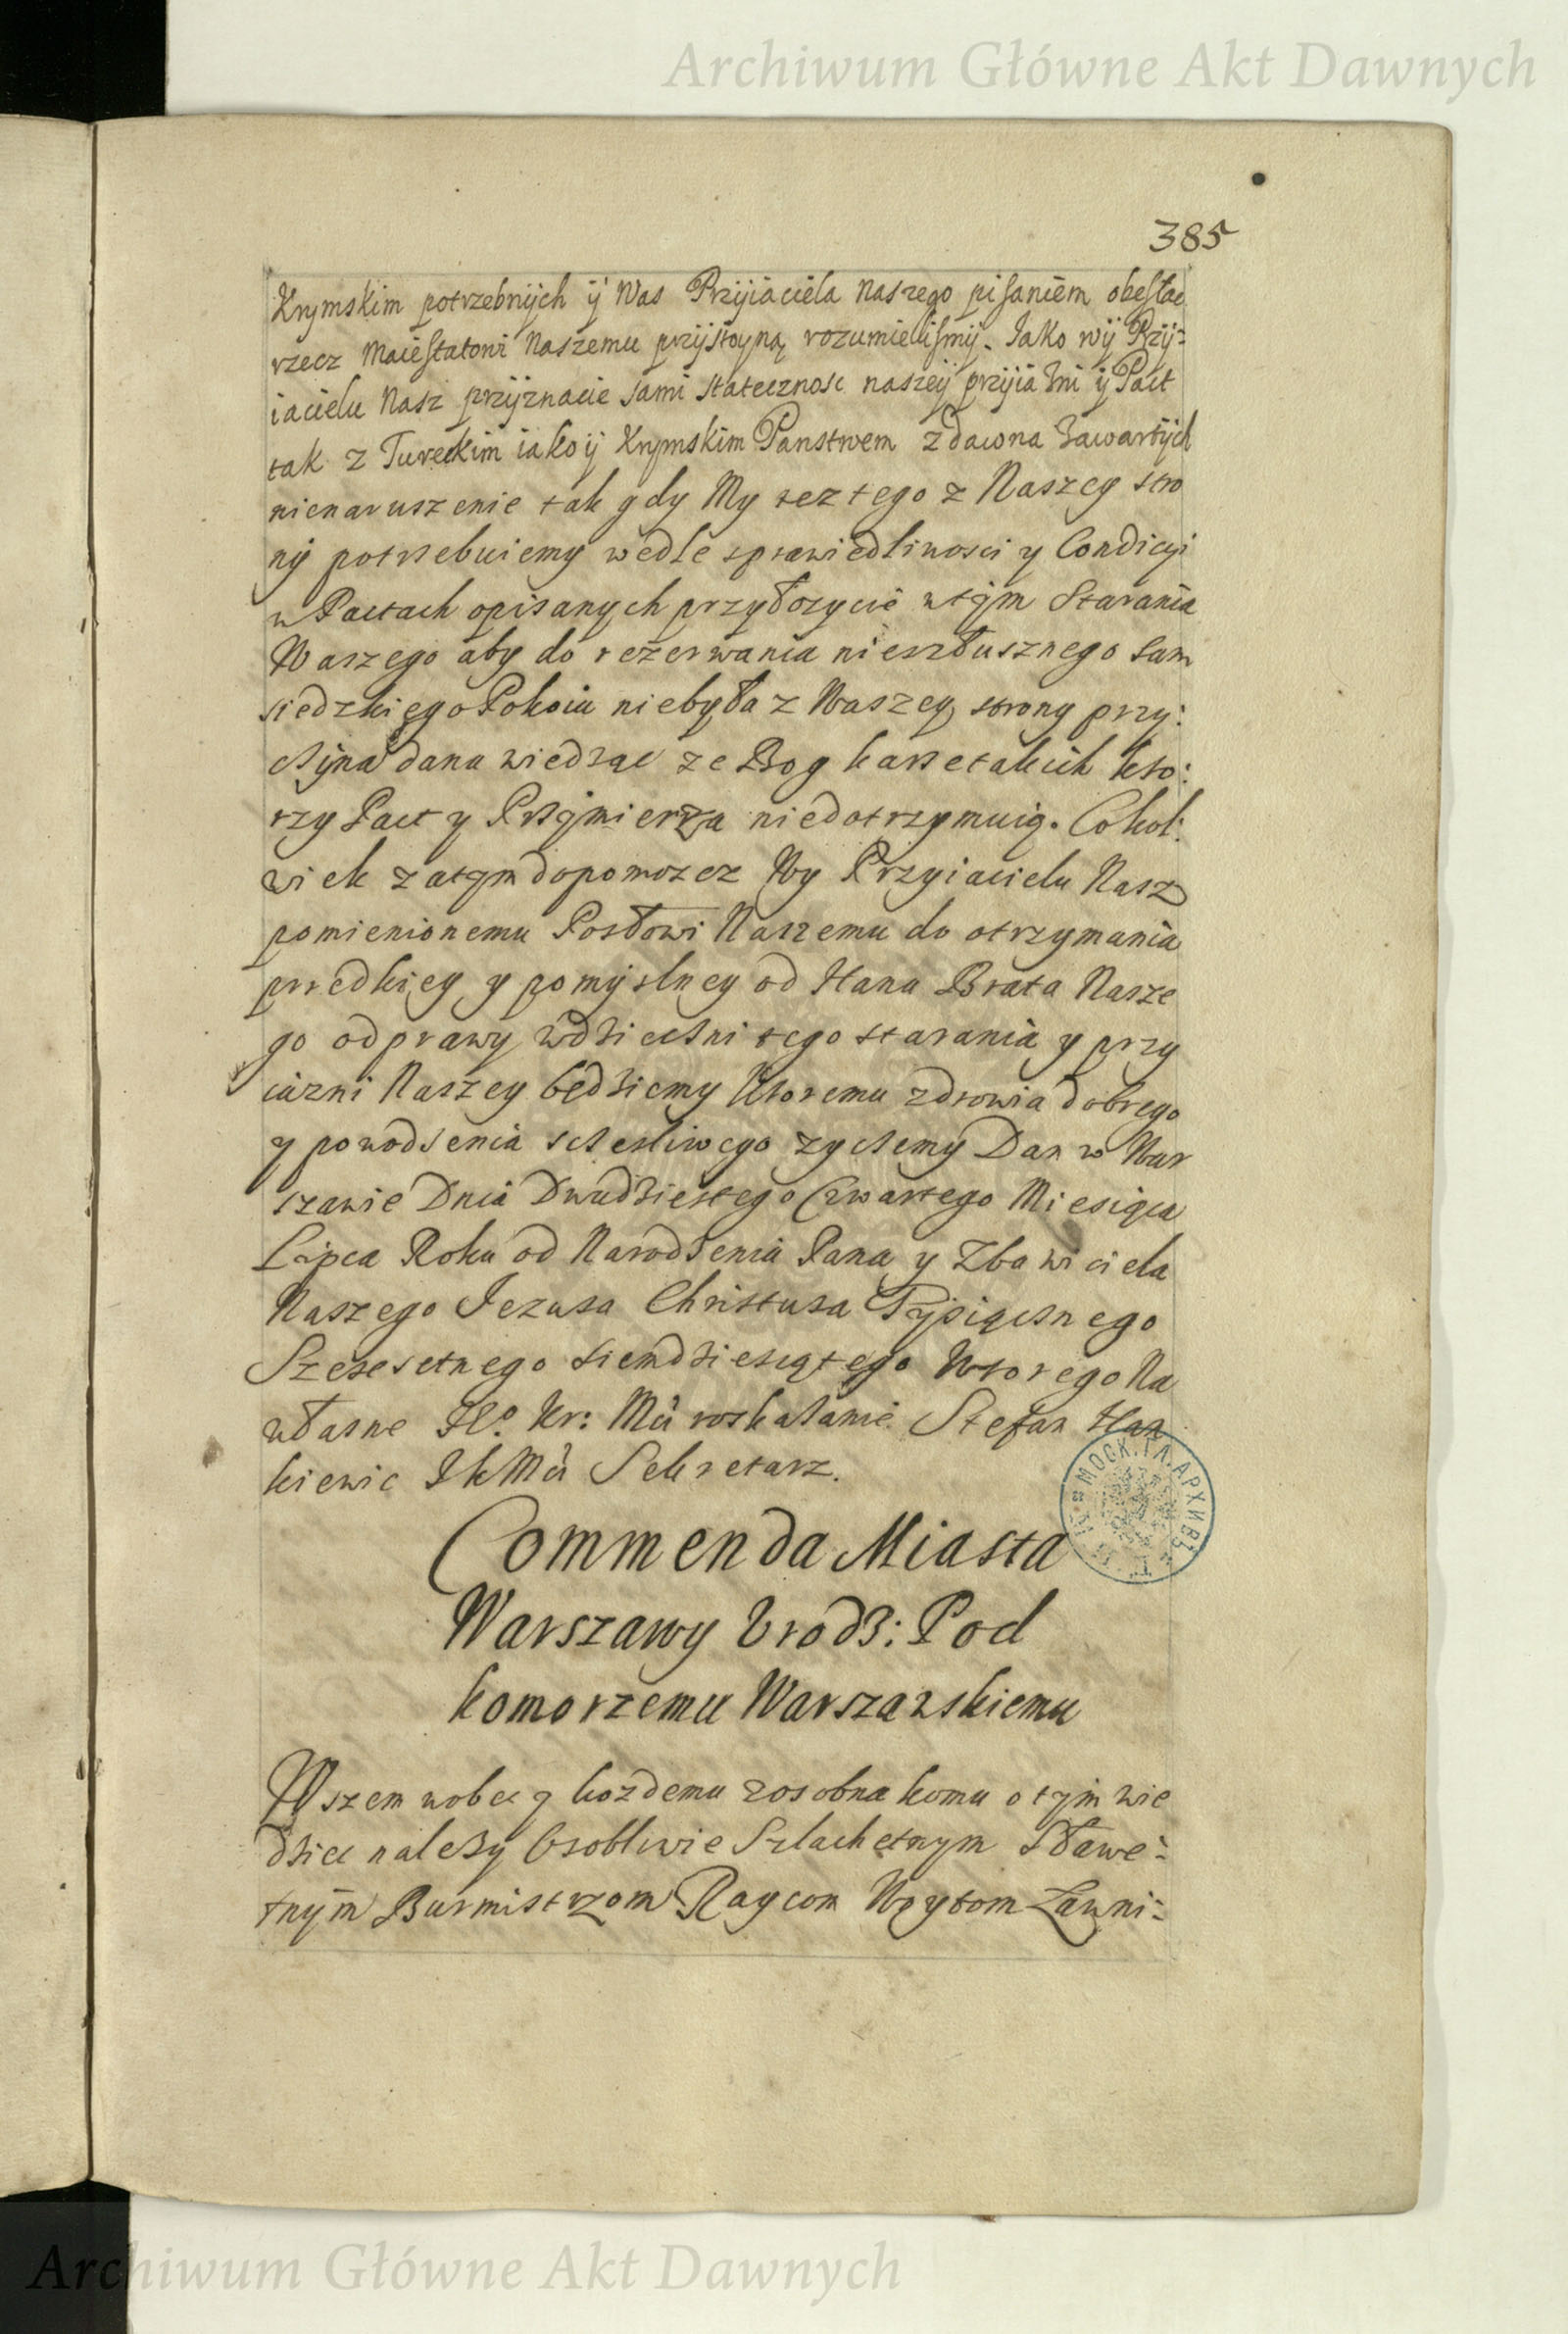 Archiwum Główne Akt Dawnych
385
Krymskim potrzebnijch ij Was Przijiaciela Naszego pisaniem obesłac
rzecz Maiestatowi Naszemu przijstoyną rozumielismij. Jako wij Przij-
iacielu Nasz przijznacie sami statecznosc naszeij przijiazni ij Pact
tak z Tureckim iako ij Krymskim Panstwem zdawna zawartijch
nienaruszenie tak gdy My tez tego z Naszey stro
ny potrzebuiemy wedle sprawiedliwosci y Condicyi
w Pactach opisanych przyłozycie wtym Starania
Waszego aby do rezerwania niesztusznego sam
siedzkiego Pokoiu niebyła z Waszey strony przy:
czyna dana wiedząc ze Bog karze takich kto:
rzy Pact y Przymierza niedotrzymuią. Cokol:
wiek zatym dopomozez Wy Przyiacielu Nasz
pomienionemu Posłowi Naszemu do otrzymania
prredkiey y pomyslney od Hana Brata Nasze
go odprawy wdzieczni tego starania y przy
iazni Naszey będziemy ktoremu zdrowia dobrego
y powodzenia sczesliwego zyczemy Dan w War
szawie Dnia Dwudziestego Czwartego Miesiąca
Lipca Roku od Narodzenia Pana y Zbawiciela
Naszego Jezusa Christusa Tysiącznego
Szescsetnego Siemdziesiątego Wtorego Na
własne Kr: Mci roskazanie Stefan Han
kiewic JkMci Sekretarz.
МОСК. ГЛ. АРХИВЪ
Commenda Miasta
Warszawy Urodz: Pod
komorzemu Warszawskiemu
Wszem wobec y kozdemu zosobna komu o tym wie
dziec nalezy Osobliwie Szlachetnym Sławe-
tnym Burmistrzom Raycom Woytom Ławni-
Archiwum Główne Akt Dawnych